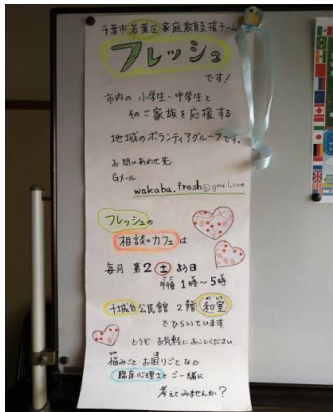 千葉市若葉区家庭教育支援チーム
フレッシュ
です！
市内の小学生・中学生と
そのご家族を応援する
地域のボランティアグループです。
お問いあわせ先
Gメール
wakaba.fresh@gmail.com
フレッシュの
相談・カフェは
毎月 第2土よう日
午後 1時〜5時
千城台公民館 2階 和室
でひらいています
どうぞ お気軽にお越しください
悩みごと お困りごとなど
臨床心理士とご一緒に
考えてみませんか？